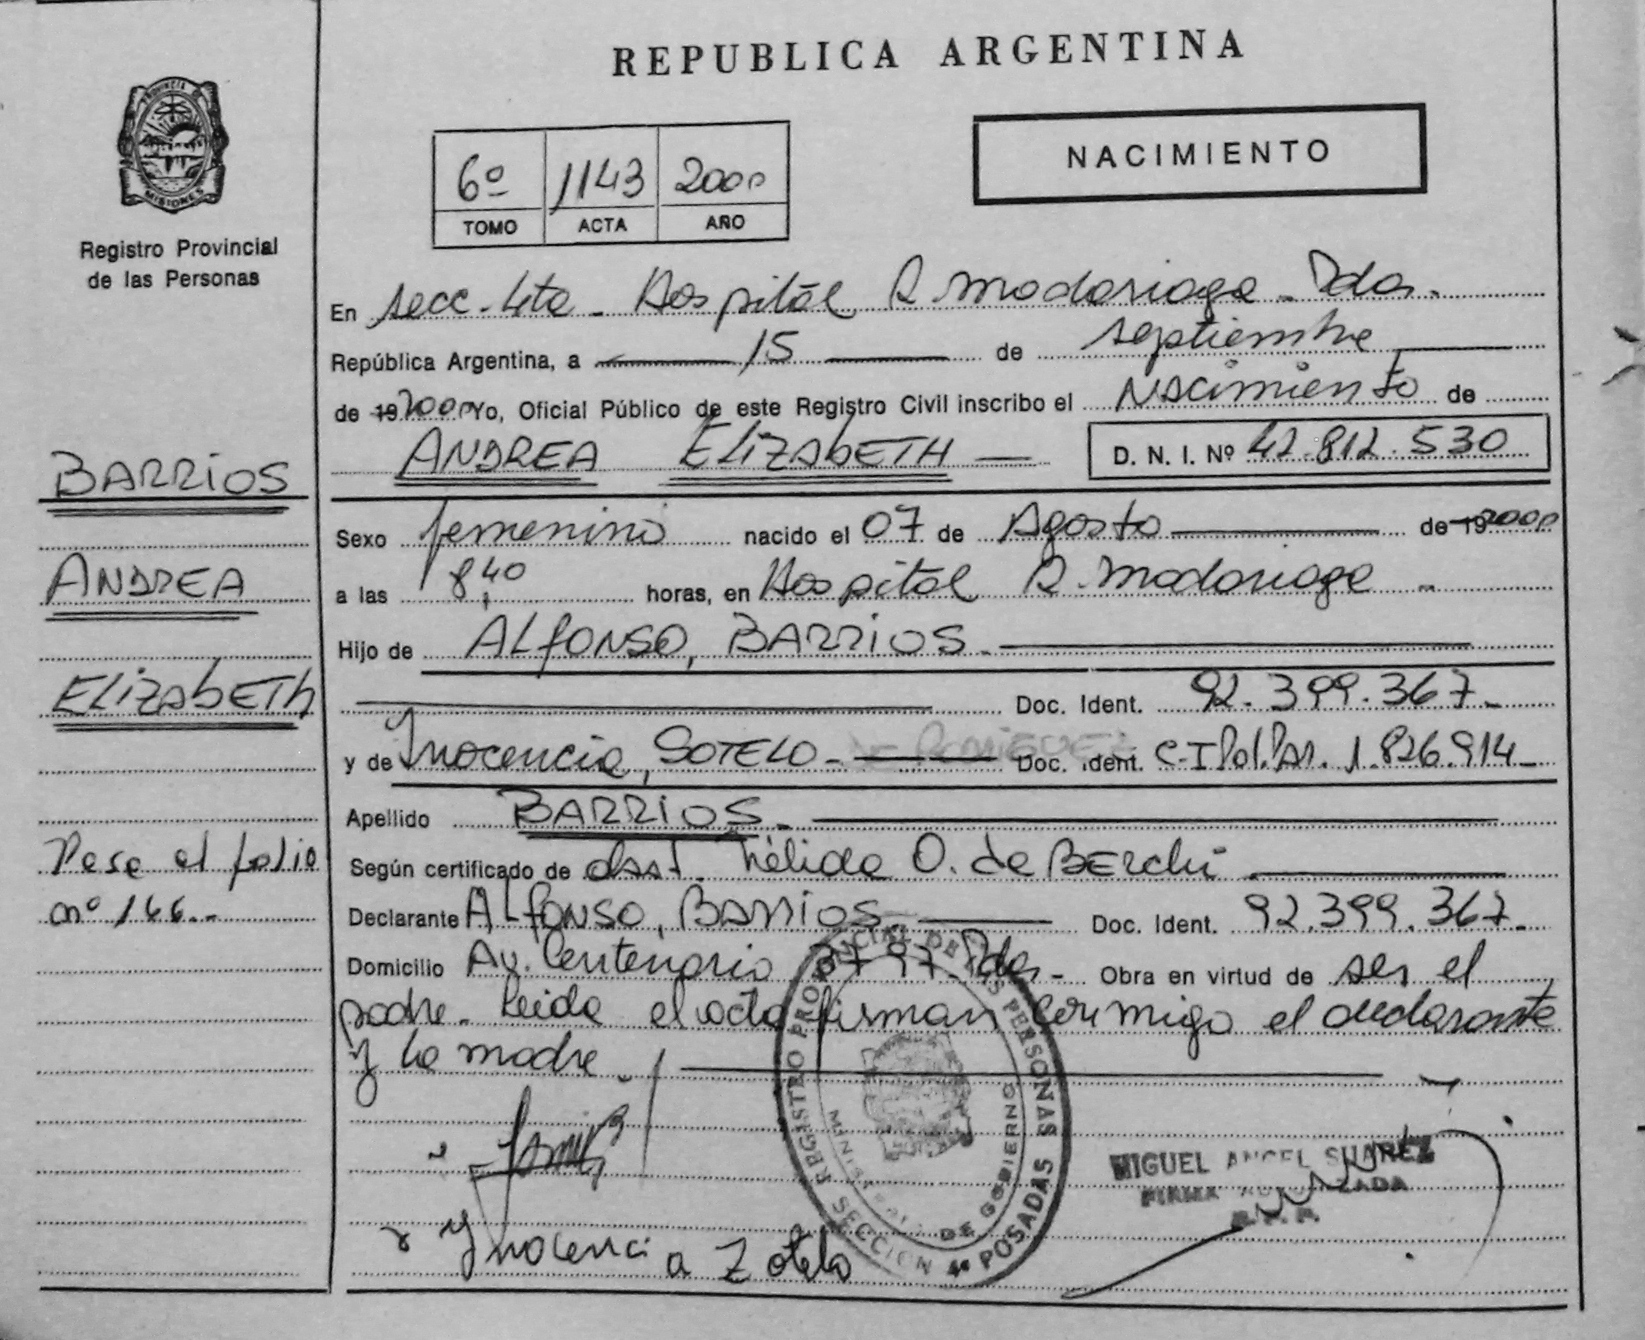 REPUBLICA ARGENTINA
PROVINCIA DE
MISIONES
Registro Provincial
de las Personas
6º 1143 2000
TOMO ACTA AÑO
NACIMIENTO
En secc. 4ta - Hospital R. Madariaga - Pdas.
República Argentina, a 15 de septiembre
de 19 2000 Yo, Oficial Público de este Registro Civil inscribo el Nacimiento de
ANDREA ELIZABETH D. N. I. Nº 42.812.530
BARRIOS
ANDREA
ELIZABETH
Pasa al folio
nº 166.-
Sexo femenino nacido el 07 de Agosto de 19 2000
a las 8,40 horas, en Hospital R. Madariaga -
Hijo de ALFONSO, BARRIOS.
Doc. Ident. 92.399.367.-
y de Inocencia, SOTELO - Doc. Ident. C.I Pol. Par. 1.826.914-
Apellido BARRIOS.
Según certificado de obst. Nélida O. de BERchi
Declarante ALFONSO, BARRIOS Doc. Ident. 92.399.367-
Domicilio Av. Centenario Pdas.- Obra en virtud de ser el
padre. Leida el acta firman conmigo el declarante
y la madre.
REGISTRO PROVINCIAL DE LAS PERSONAS
DE GOBIERNO
SECCION 4ª POSADAS
MIGUEL ANGEL SUAREZ
FIRMA AUTORIZADA
Ynocencia Zotelo